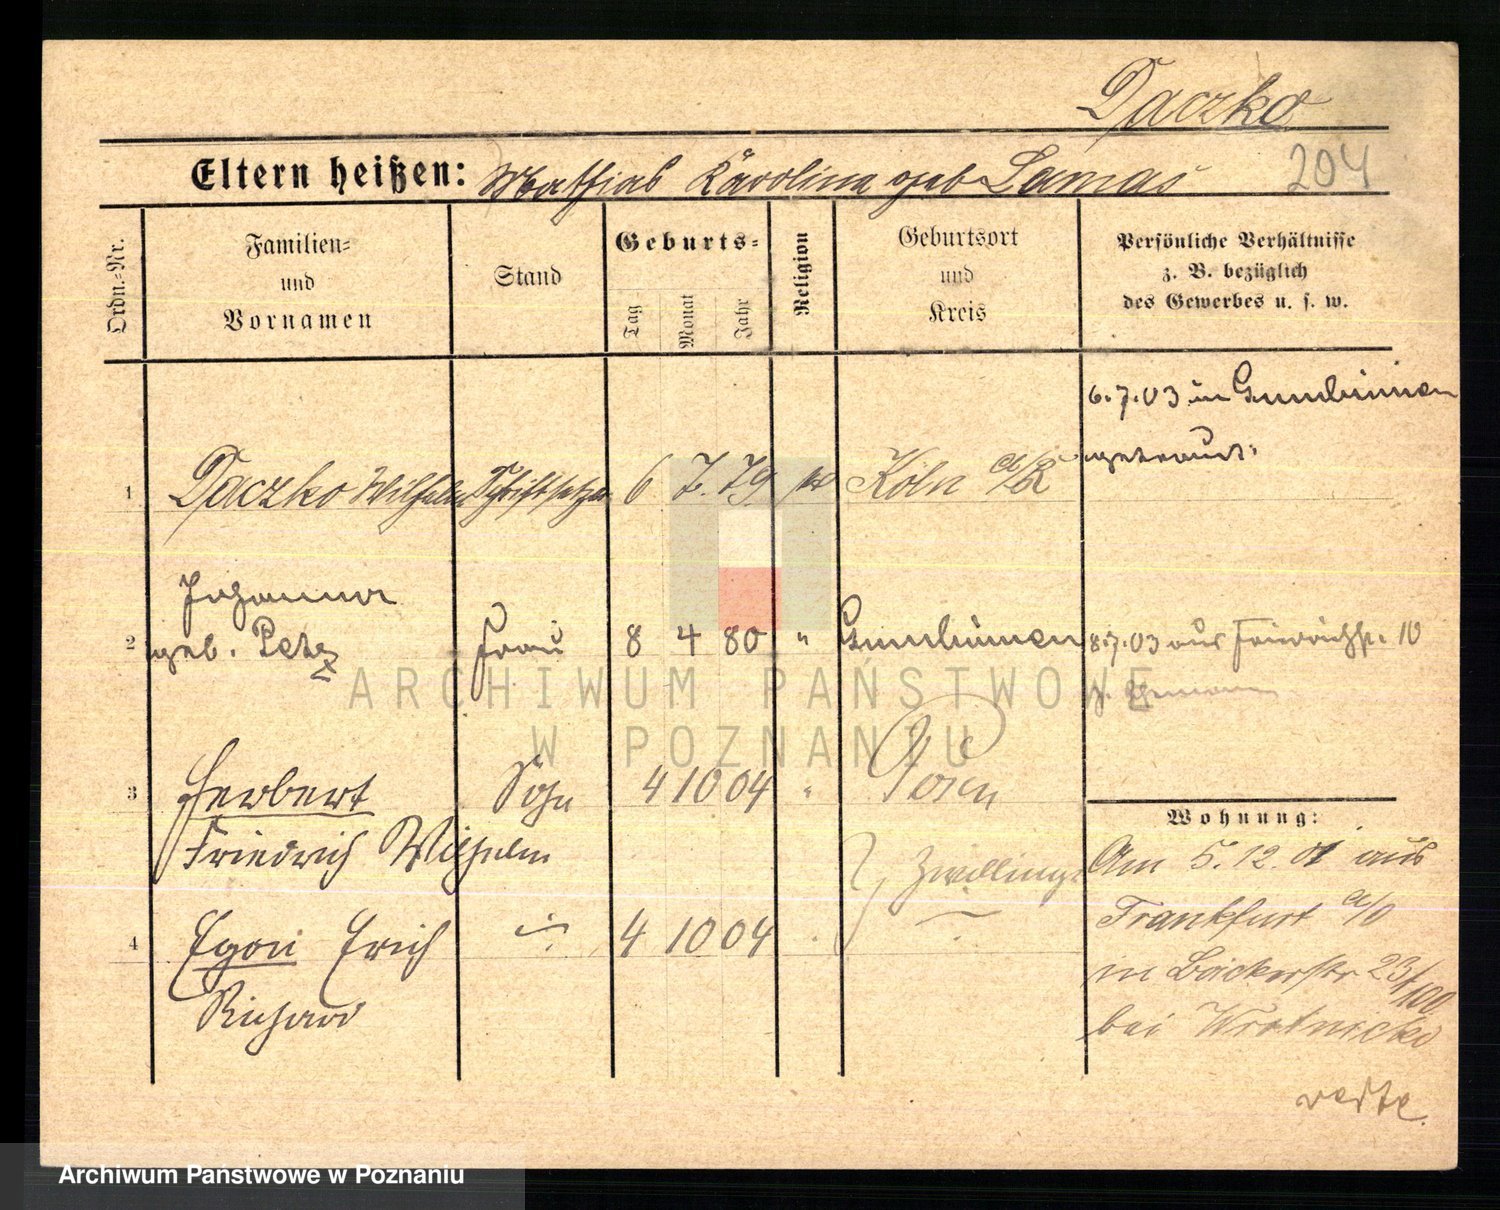 Daczko
204
Eltern heißen: Mathias Karolina geb Lamas
Ordn.-Nr.
Familien-
und
Vornamen
Stand
Geburts-
Tag
Monat
Jahr
Religion
Geburtsort
und
Kreis
Persönliche Verhältnisse
z. B. bezüglich
des Gewerbes u. s. w.
6.7.03 in Gumbinnen
getraut.
1 Daczko Wilhelm Schriftsetzer 6 7. 79 Köln a/R
Johanna
2 geb. Petz Frau 8 4 80 " Gumbinnen 8.7.03 aus Friedrichstr. 10
3 Herbert Sohn 4 10 04 " Posen
Friedrich Wilhelm
Zwillinge
4 Egon Erich " 4 10 04
Richard
Wohnung:
Am 5.12.01 aus
Frankfurt a/O
in Bäckerstr 23/
100
bei Wrotnicki
ARCHIWUM PAŃSTWOWE
W POZNANIU
Archiwum Państwowe w Poznaniu